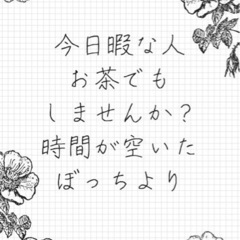 今日暇な人
お茶でも
しませんか?
時間が空いた
ぼっちより